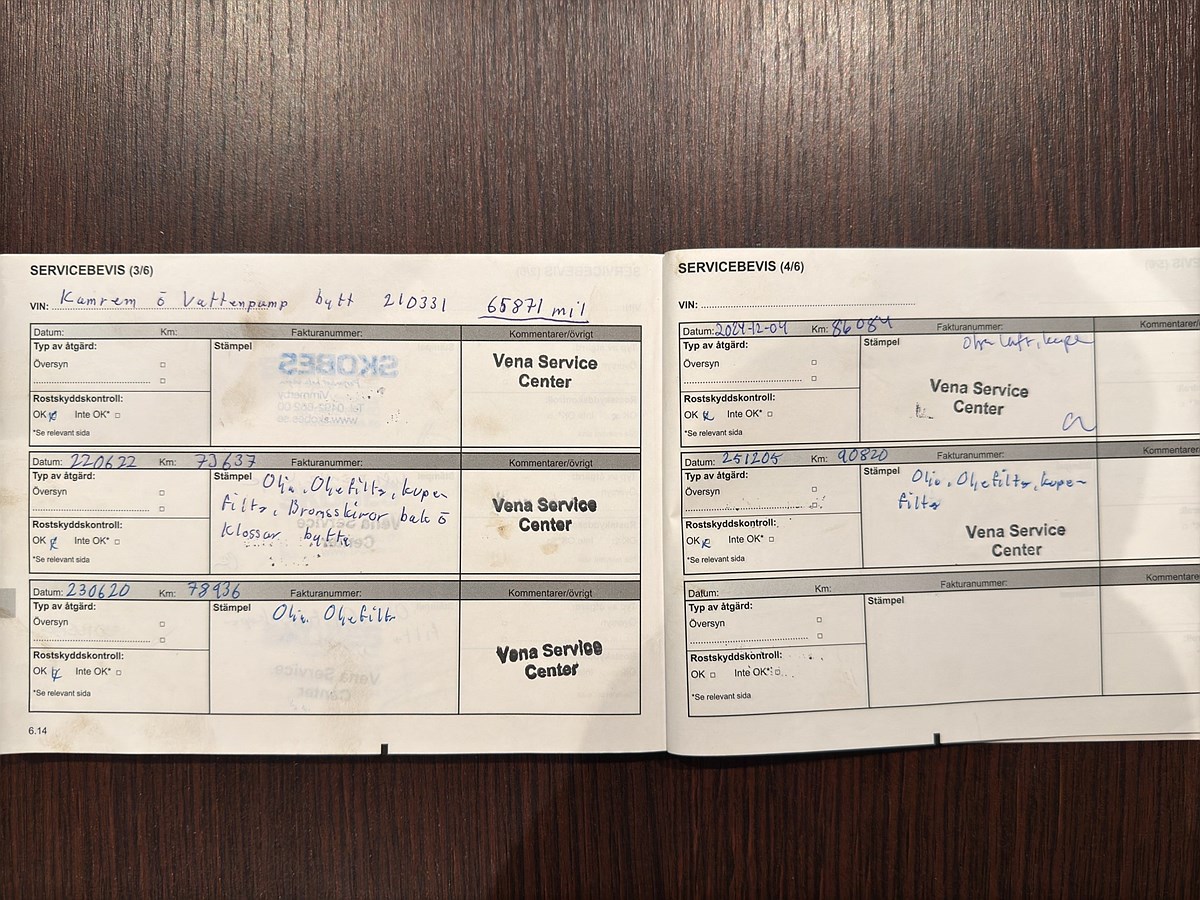 SERVICEBEVIS (3/6)
VIN: Kamrem ö Vattenpump bytt 210331 65871 mil
Datum: Km: Fakturanummer: Kommentarer/övrigt
Typ av åtgärd:
Stämpel
Översyn
Vena Service
Center
Rostskyddskontroll:
OK Inte OK*
*Se relevant sida
Datum: 220622 Km: 73637 Fakturanummer: Kommentarer/övrigt
Typ av åtgärd:
Stämpel Olja, Oljefilter, kupe-
filter, Bromsskivor bak ö
klossar bytta
Översyn
Vena Service
Center
Rostskyddskontroll:
OK Inte OK*
*Se relevant sida
Datum: 230620 Km: 78936 Fakturanummer: Kommentarer/övrigt
Typ av åtgärd:
Stämpel Olja. Oljefilt
Översyn
Vena Service
Center
Rostskyddskontroll:
OK Inte OK*
*Se relevant sida
6.14
SERVICEBEVIS (4/6)
VIN:
Datum: 2024-12-04 Km: 86084 Fakturanummer: Kommentarer/
Typ av åtgärd:
Stämpel Olja Luft, kupe
Översyn
Vena Service
Center
Rostskyddskontroll:
OK Inte OK*
*Se relevant sida
Datum: 251205 Km: 90820 Fakturanummer: Kommentarer/
Typ av åtgärd:
Stämpel Olja, Oljefilter, kupe-
filter
Översyn
Vena Service
Center
Rostskyddskontroll:
OK Inte OK*
*Se relevant sida
Datum: Km: Fakturanummer: Kommentare
Typ av åtgärd:
Stämpel
Översyn
Rostskyddskontroll:
OK Inte OK*
*Se relevant sida